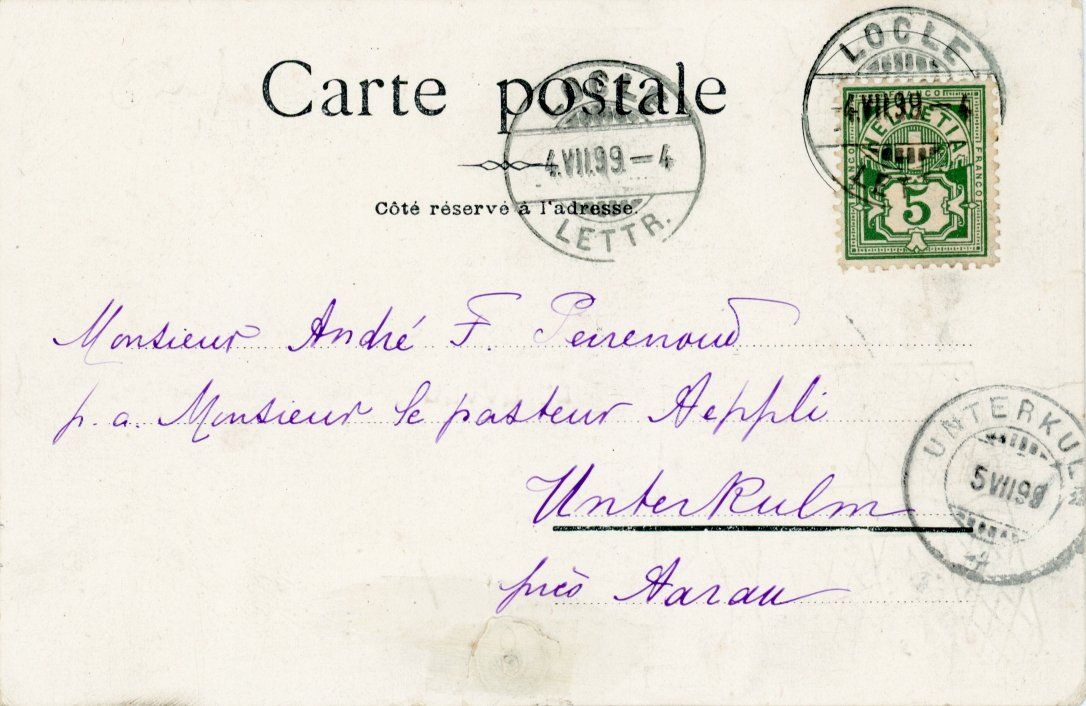 LOCLE
4.VII.99.-4
LETTR.
Carte postale
LOCLE
4.VII.99.-4
LETTR.
Côté réservé à l'adresse.
FRANCO
FRANCO
HELVETIA
5
Monsieur André F. Perrenoud
p. a. Monsieur le pasteur Aeppli
Unterkulm
près Aarau
UNTERKULM
5 VII 99